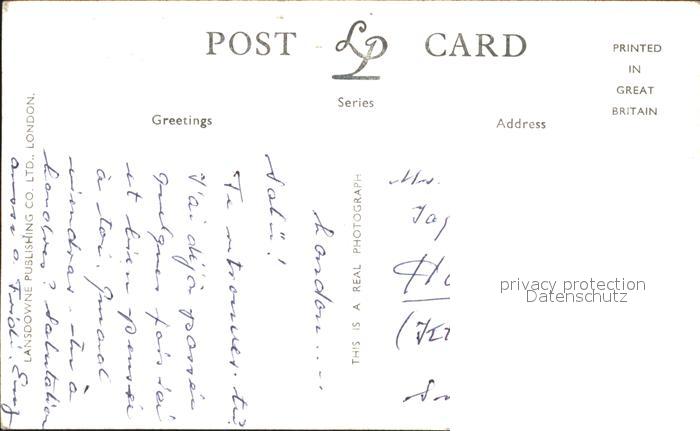 POST LP CARD
Series
PRINTED
IN
GREAT
BRITAIN
Greetings
Address
LANSDOWNE PUBLISHING CO. LTD., LONDON.
THIS IS A REAL PHOTOGRAPH
London...
Salü!
Te retrouves-tu?
J'ai déjà passé
quelques fois ici
et bien pensé
à toi. Quand
viendras-tu à
Londres? Salutation
aussi à
Mr.
privacy protection
Datenschutz